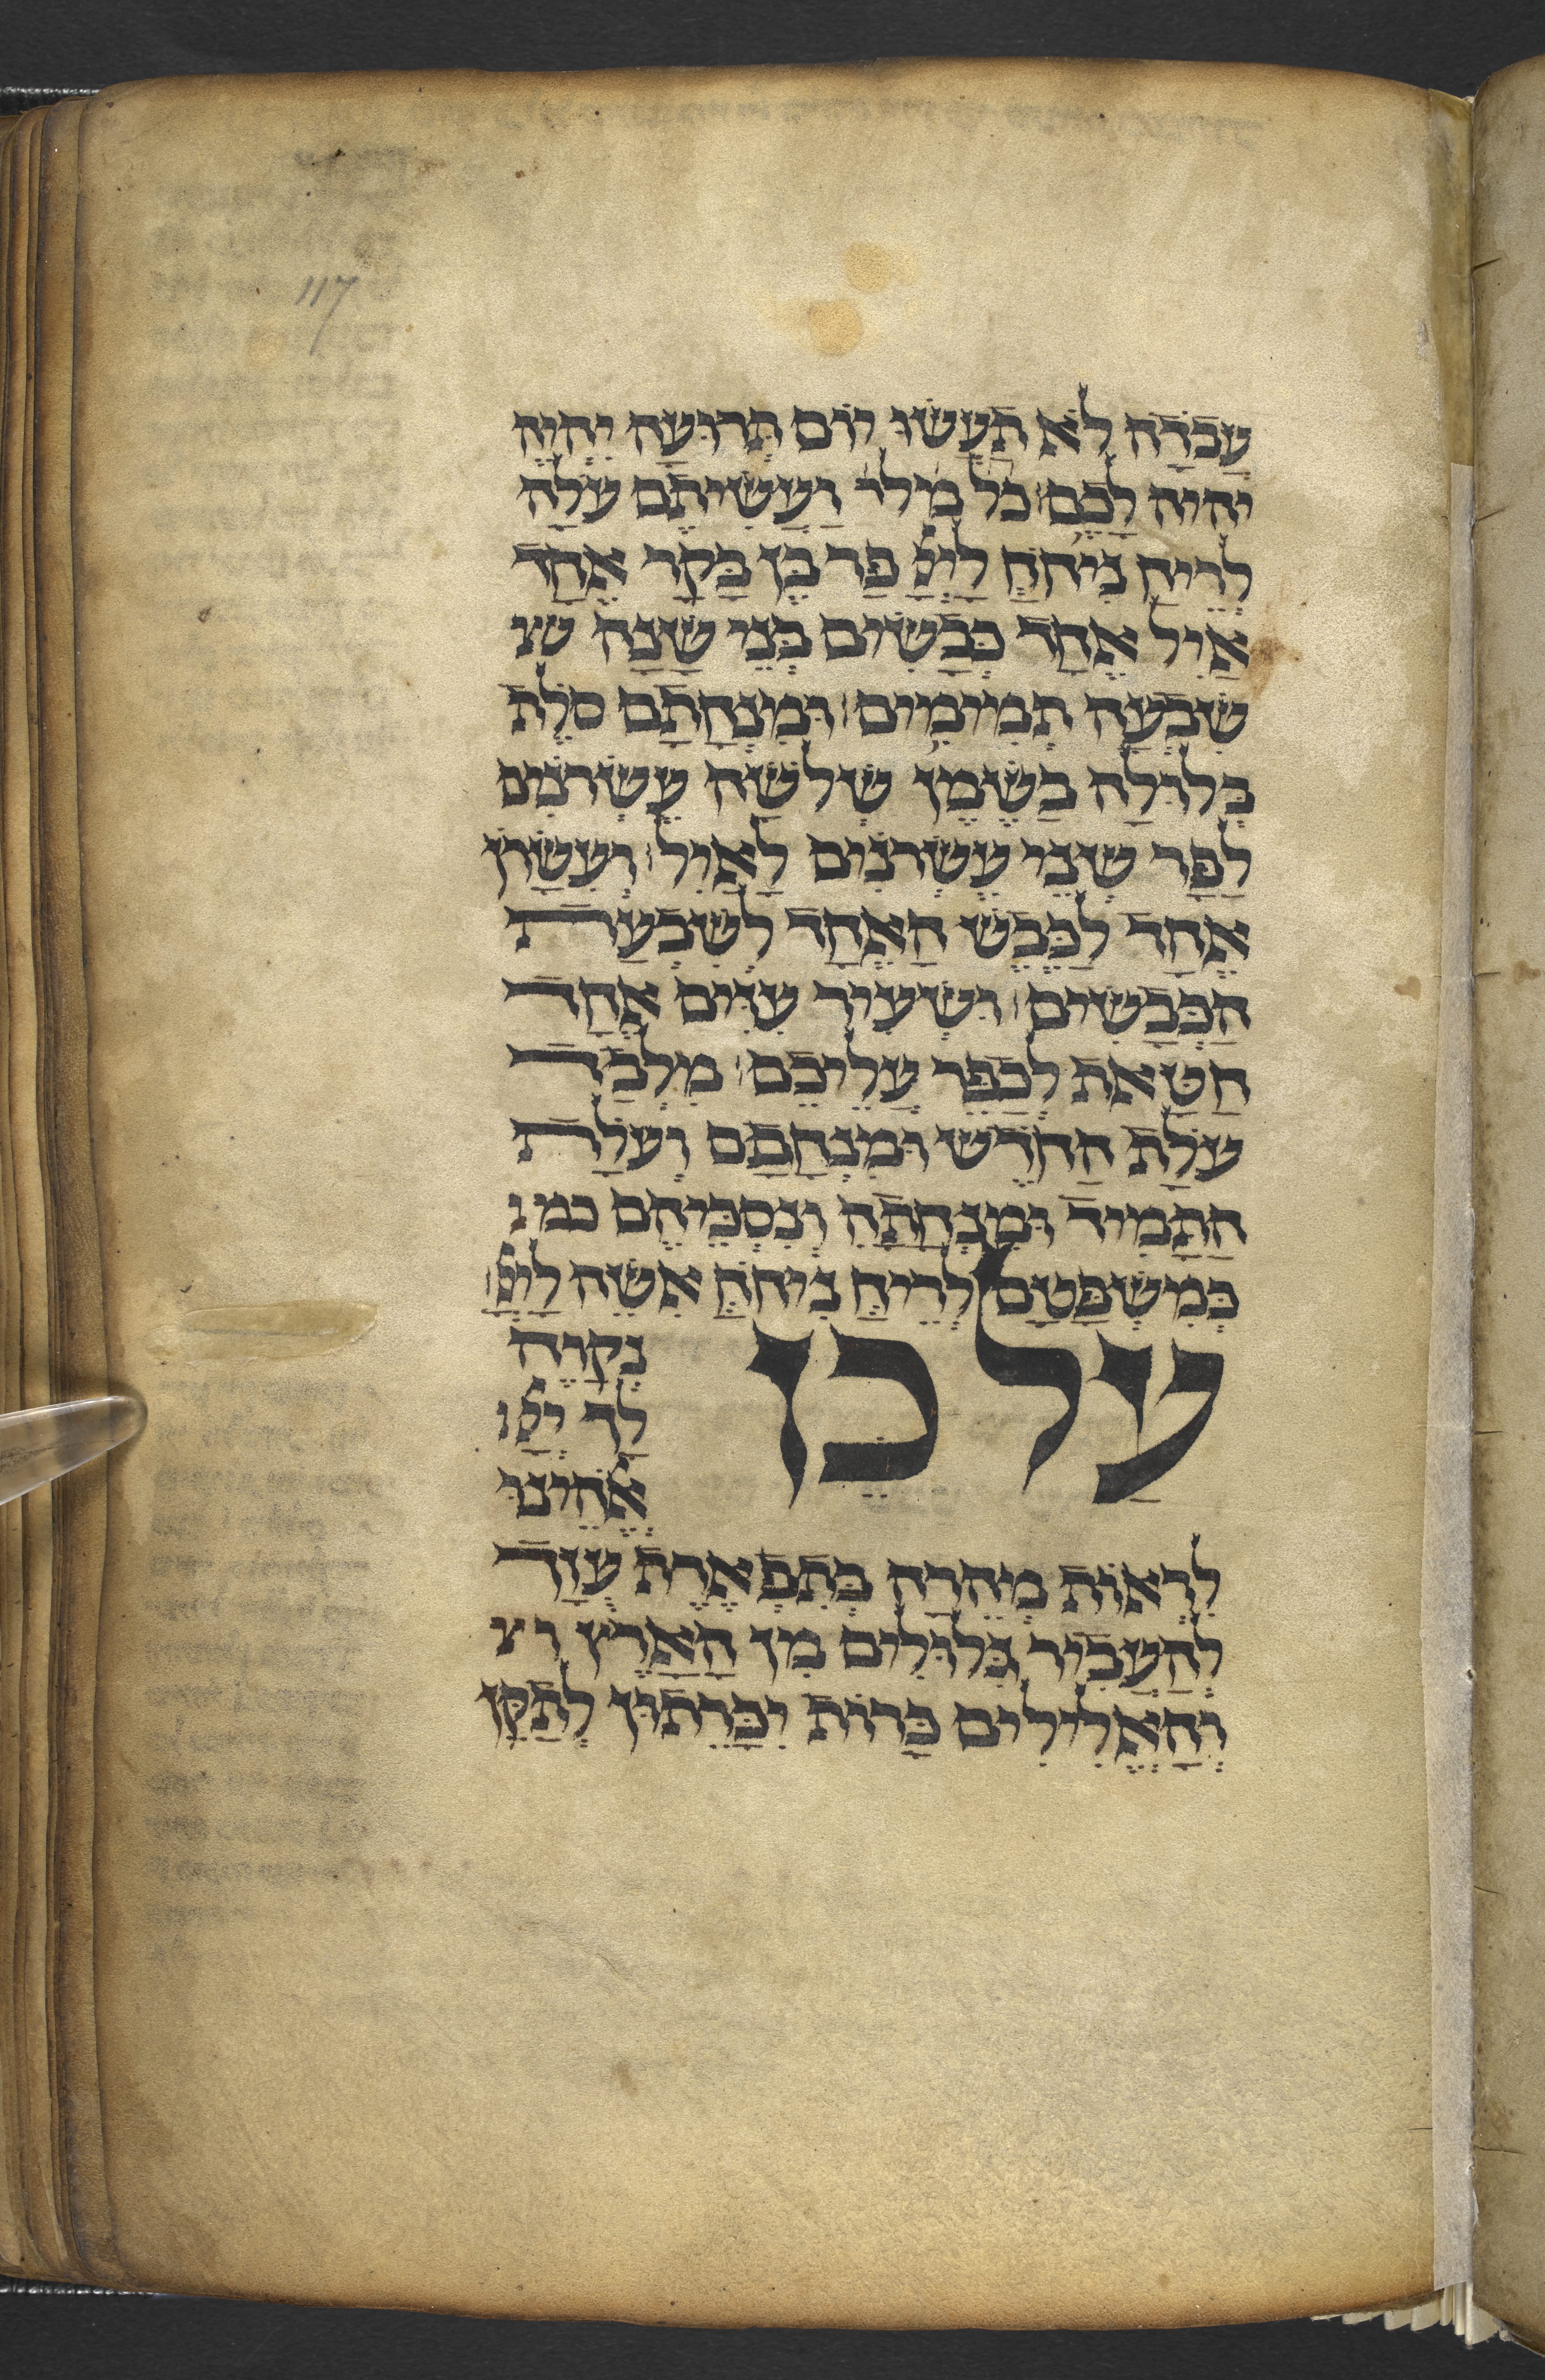 117
עֲבֹדָה לֹא תַעֲשׂוּ יוֹם תְּרוּעָה יִהְיֶה
יהיה לָכֶם׃ כל מלר וַעֲשִׂיתֶם עֹלָה
לְרֵיחַ נִיחֹחַ לַייָ פַּר בֶּן בָּקָר אֶחָד
אַיִל אֶחָד כְּבָשִׂים בְּנֵי שָׁנָה שׁ
שִׁבְעָה תְמִימִים׃ וּמִנְחָתָם סֹלֶת
בְּלוּלָה בַשֶּׁמֶן שְׁלֹשָׁה עֶשְׂרֹנִים
לַפָּר שְׁנֵי עֶשְׂרֹנִים לָאַיִל׃ וְעִשָּׂרוֹן
אֶחָד לַכֶּבֶשׂ הָאֶחָד לְשִׁבְעַת
הַכְּבָשִׂים׃ וּשְׂעִיר עִזִּים אֶחָד
חַטָּאת לְכַפֵּר עֲלֵיכֶם׃ מִלְּבַד
עֹלַת הַחֹדֶשׁ וּמִנְחָתָם וְעֹלַת
הַתָּמִיד וּמִנְחָתָהּ וְנִסְכֵּיהֶם כמ
כְּמִשְׁפָּטָם לְרֵיחַ נִיחֹחַ אִשֶּׁה לַייָ׃
עַל כֵּן נְקַוֶּה
לָךְ ייָ
אֱלֹהֵינוּ
לִרְאוֹת מְהֵרָה בְּתִפְאֶרֶת עֻזָּךְ
לְהַעֲבִיר גִּלּוּלִים מִן הָאָרֶץ
וְהָאֱלִילִים כָּרוֹת יִכָּרֵתוּן לְתַקֵּן